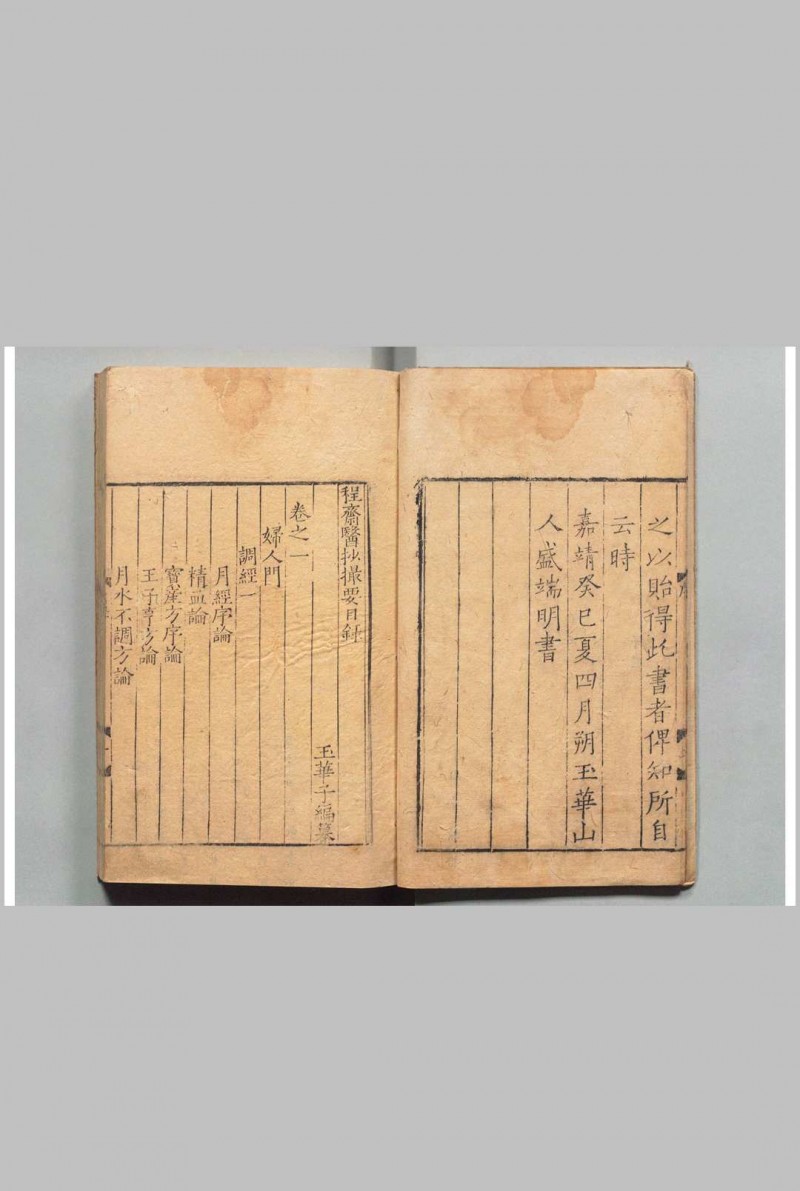 之以貽得此書者俾知所自
云時
嘉靖癸巳夏四月朔玉華山
人盛端明書
程齋醫抄撮要目録
玉華子編纂
卷之一
婦人門
調經一
月經序論
精血論
寶産方序論
王子亨方論
月水不調方論